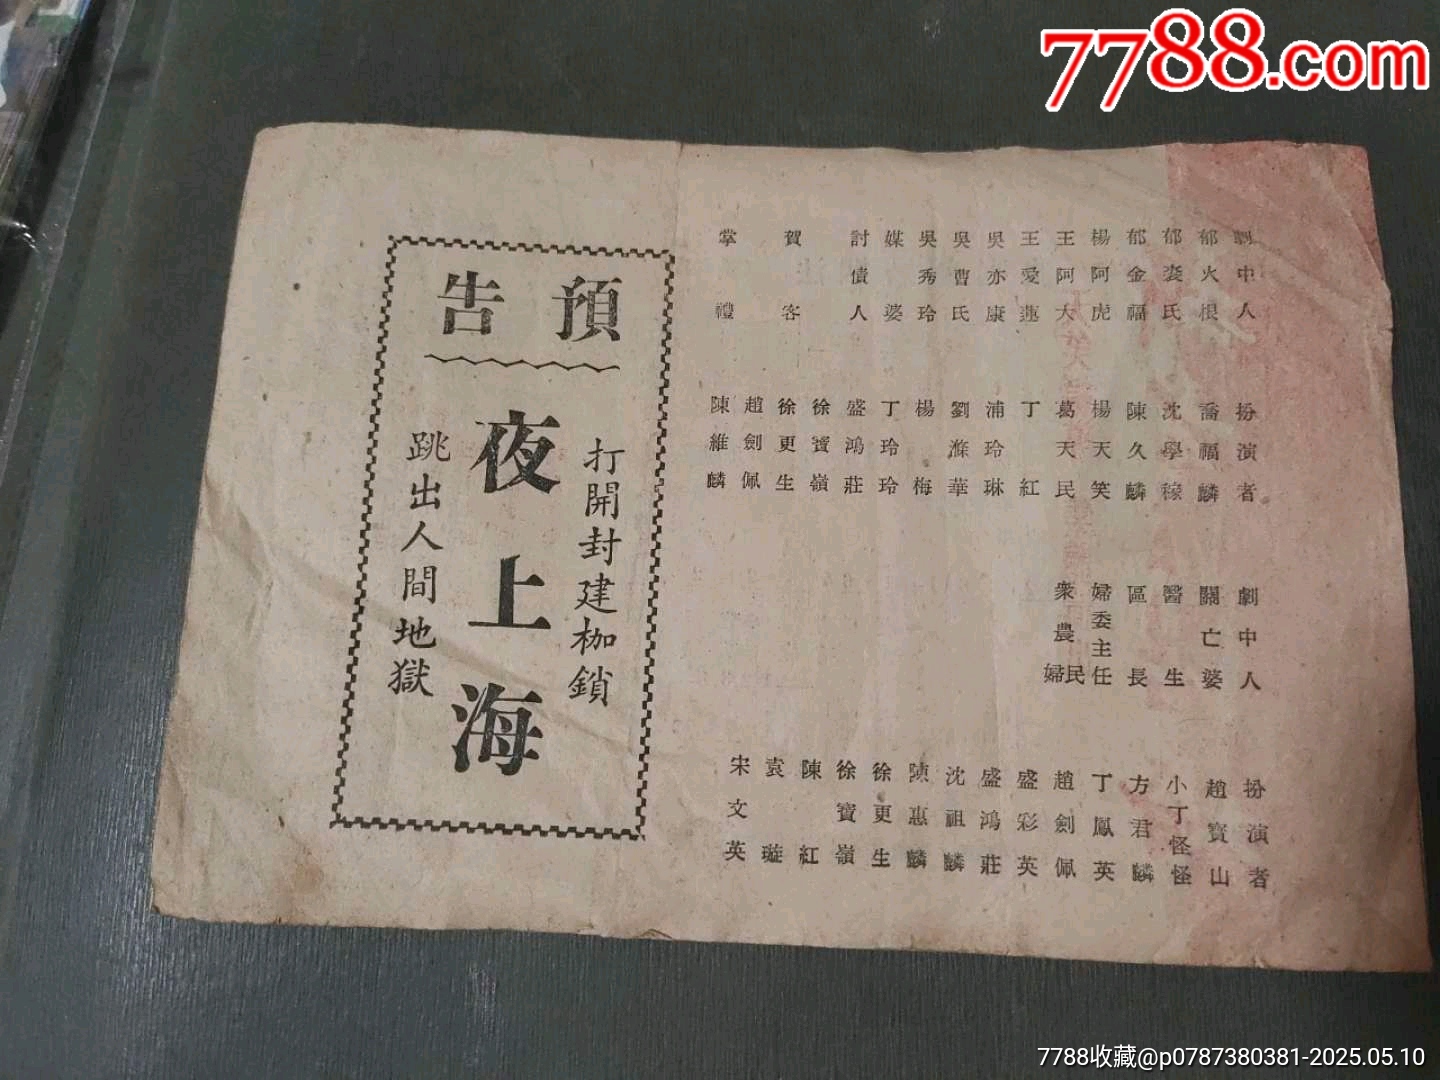 7788.com
劇中人
郁火根
郁袭氏
郁金福
楊阿虎
王阿大
王愛蓮
吳亦康
吳曹氏
吳秀玲
媒婆
討債人
賀客
掌禮
扮演者
喬福麟
沈學稼
陳久麟
楊天笑
葛天民
丁紅
浦玲琳
劉滌華
楊梅
丁玲玲
盛鴻莊
徐寶嶺
徐更生
趙劍佩
陳維麟
劇中人
關亡婆
醫生
區長
婦委主任
衆農民婦
扮演者
趙寶山
小丁怪怪
方君麟
丁鳳英
趙劍佩
盛彩英
盛鴻莊
沈祖麟
陳惠麟
徐更生
徐寶嶺
陳紅
袁璇
宋文英
預告
打開封建枷鎖
夜上海
跳出人間地獄
7788收藏@p0787380381-2025.05.10